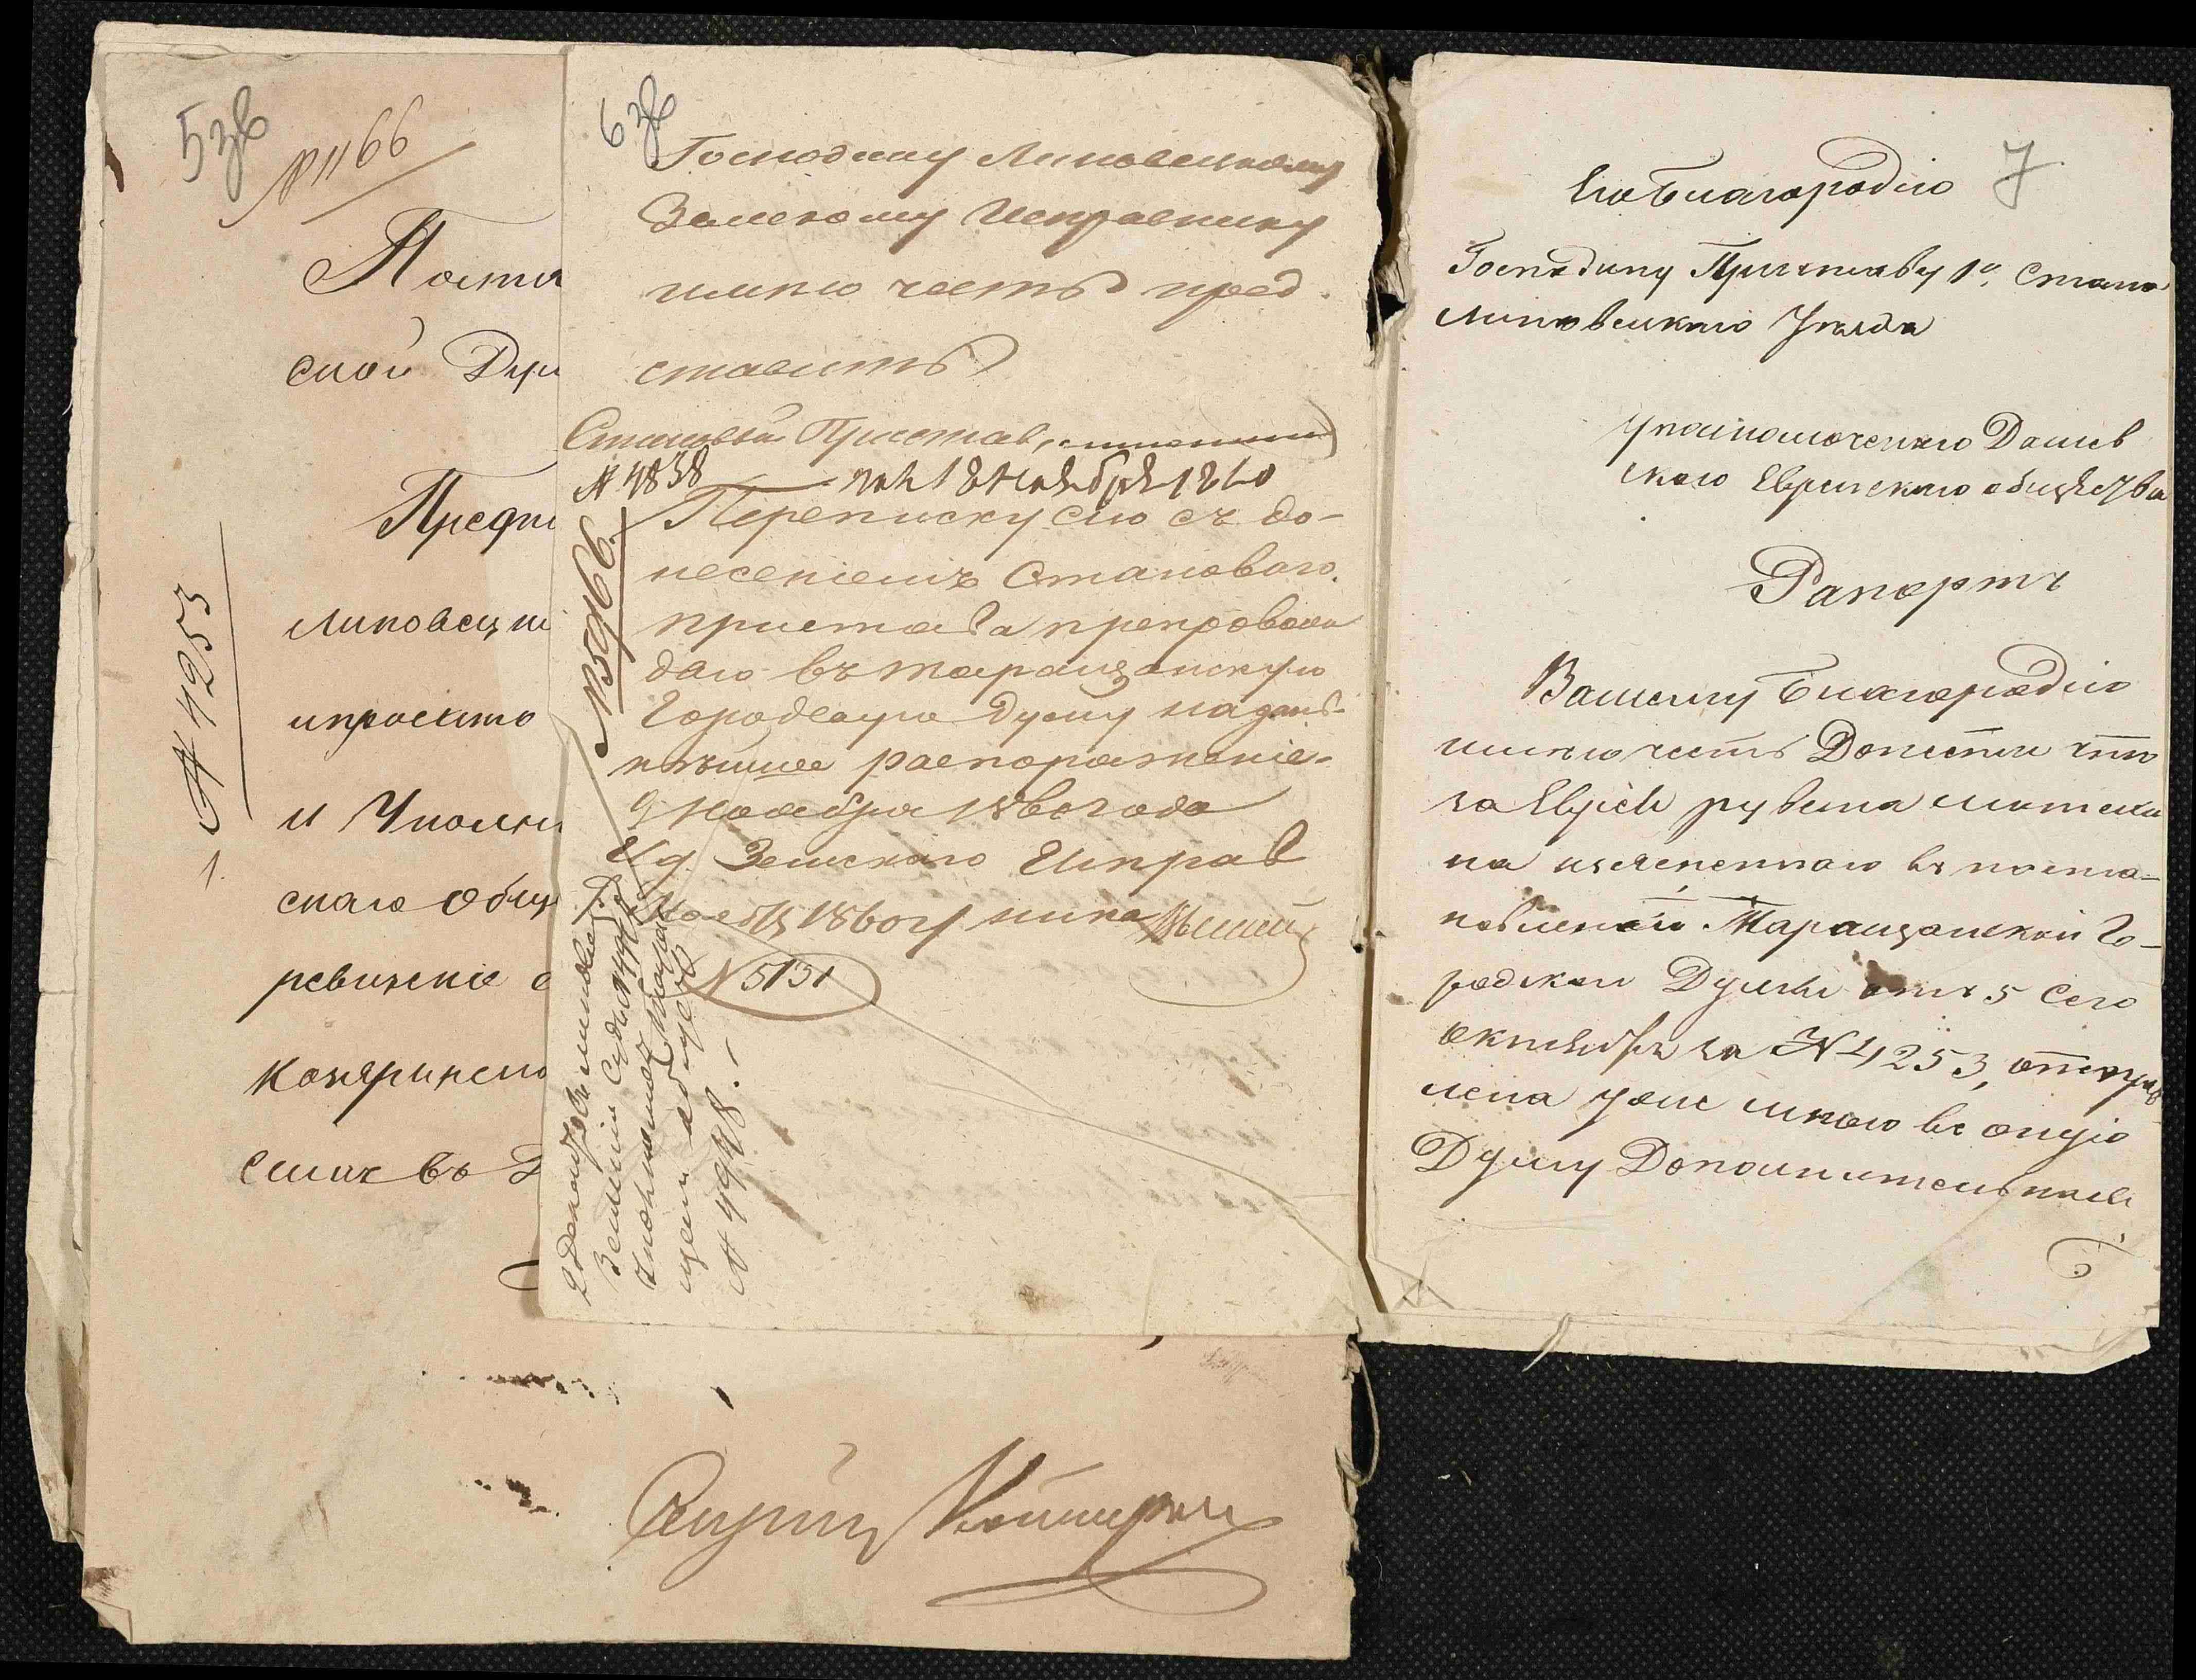 5 зв
№ 1166
Поста
ской Дум
Предп
Липовецкі
и просито
и Уполн
скаго Общ
ревизскіе с
Конярински
смих въ Д
№ 4253
6 зв
Господину Липовецкому
Земскому Исправнику
имѣю честь пред
ставить
Становый Приставъ
№ 4838
18 ноября 1860
Переписку сію съ до-
несеніемъ Становаго
пристава препровож
даю въ таращанскую
Городскую думу на даль-
нѣйшее распоряженіе.
9 ноября 1860 года
И д. Земскаго Исправ
ника
Нояб 1860 г
№ 5131
№ 5966
Земскій Судъ
№ 4998.
7
Его Благородію
Господину Приставу 1о. Стана
Липовецкаго Уѣзда
Уполномоченнаго Дашев
скаго Еврейскаго общества
Рапортъ
Вашему Благородію
имѣю честь Донести что
за Еврея рувена
на изясненнаго въ поста-
новленіи Таращанской Го-
родской Думы отъ 5 Сего
октября за № 4253, отправ
лена уже мною въ оную
Думу Дополнительная